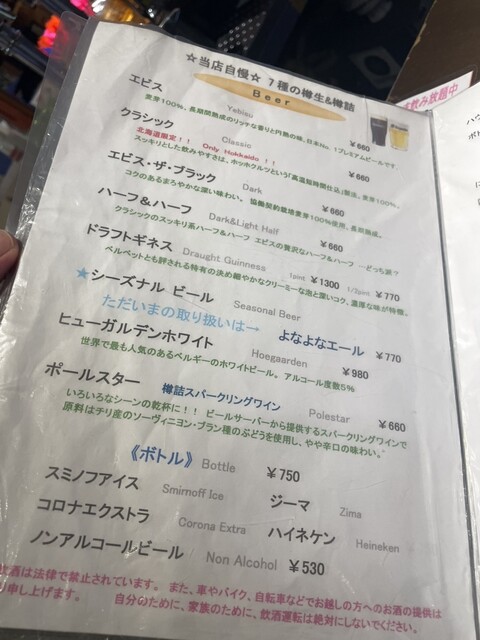 ☆当店自慢☆ 7種の樽生&樽詰
Beer
エビス Yebisu ¥660
麦芽100%、長期間熟成のリッチな香りと円熟の味、日本No.1プレミアムビールです。
クラシック Classic ¥660
北海道限定!! Only Hokkaido !!
スッキリとした飲みやすさは、ホッホクルツという「高温短時間仕込」製法、麦芽100%。
エビス・ザ・ブラック Dark ¥660
コクのあるまろやかな深い味わい。 協働契約栽培麦芽100%使用、長期熟成。
ハーフ&ハーフ Dark&Light Half ¥660
クラシックのスッキリ系ハーフ&ハーフ エビスの贅沢なハーフ&ハーフ …どっち派?
ドラフトギネス Draught Guinness 1pint ¥1300 1/2pint ¥770
ベルベットとも評される特有の決め細やかなクリーミーな泡と深いコク、濃厚な味が特徴。
★シーズナル ビール Seasonal Beer
ただいまの取り扱いは→ よなよなエール ¥770
ヒューガルデンホワイト Hoegaarden ¥980
世界で最も人気のあるベルギーのホワイトビール。 アルコール度数5%
ポールスター 樽詰スパークリングワイン Polestar ¥660
いろいろなシーンの乾杯に!! ビールサーバーから提供するスパークリングワインで
原料はチリ産のソーヴィニヨン・ブラン種のぶどうを使用し、やや辛口の味わい。
《ボトル》 Bottle ¥750
スミノフアイス Smirnoff Ice ジーマ Zima
コロナエクストラ Corona Extra ハイネケン Heineken
ノンアルコールビール Non Alcohol ¥530
飲酒は法律で禁止されています。 また、車やバイク、自転車などでお越しの方へのお酒の提供は
り申し上げます。 自分のために、家族のために、飲酒運転は絶対にしないでください。
飲み放題中